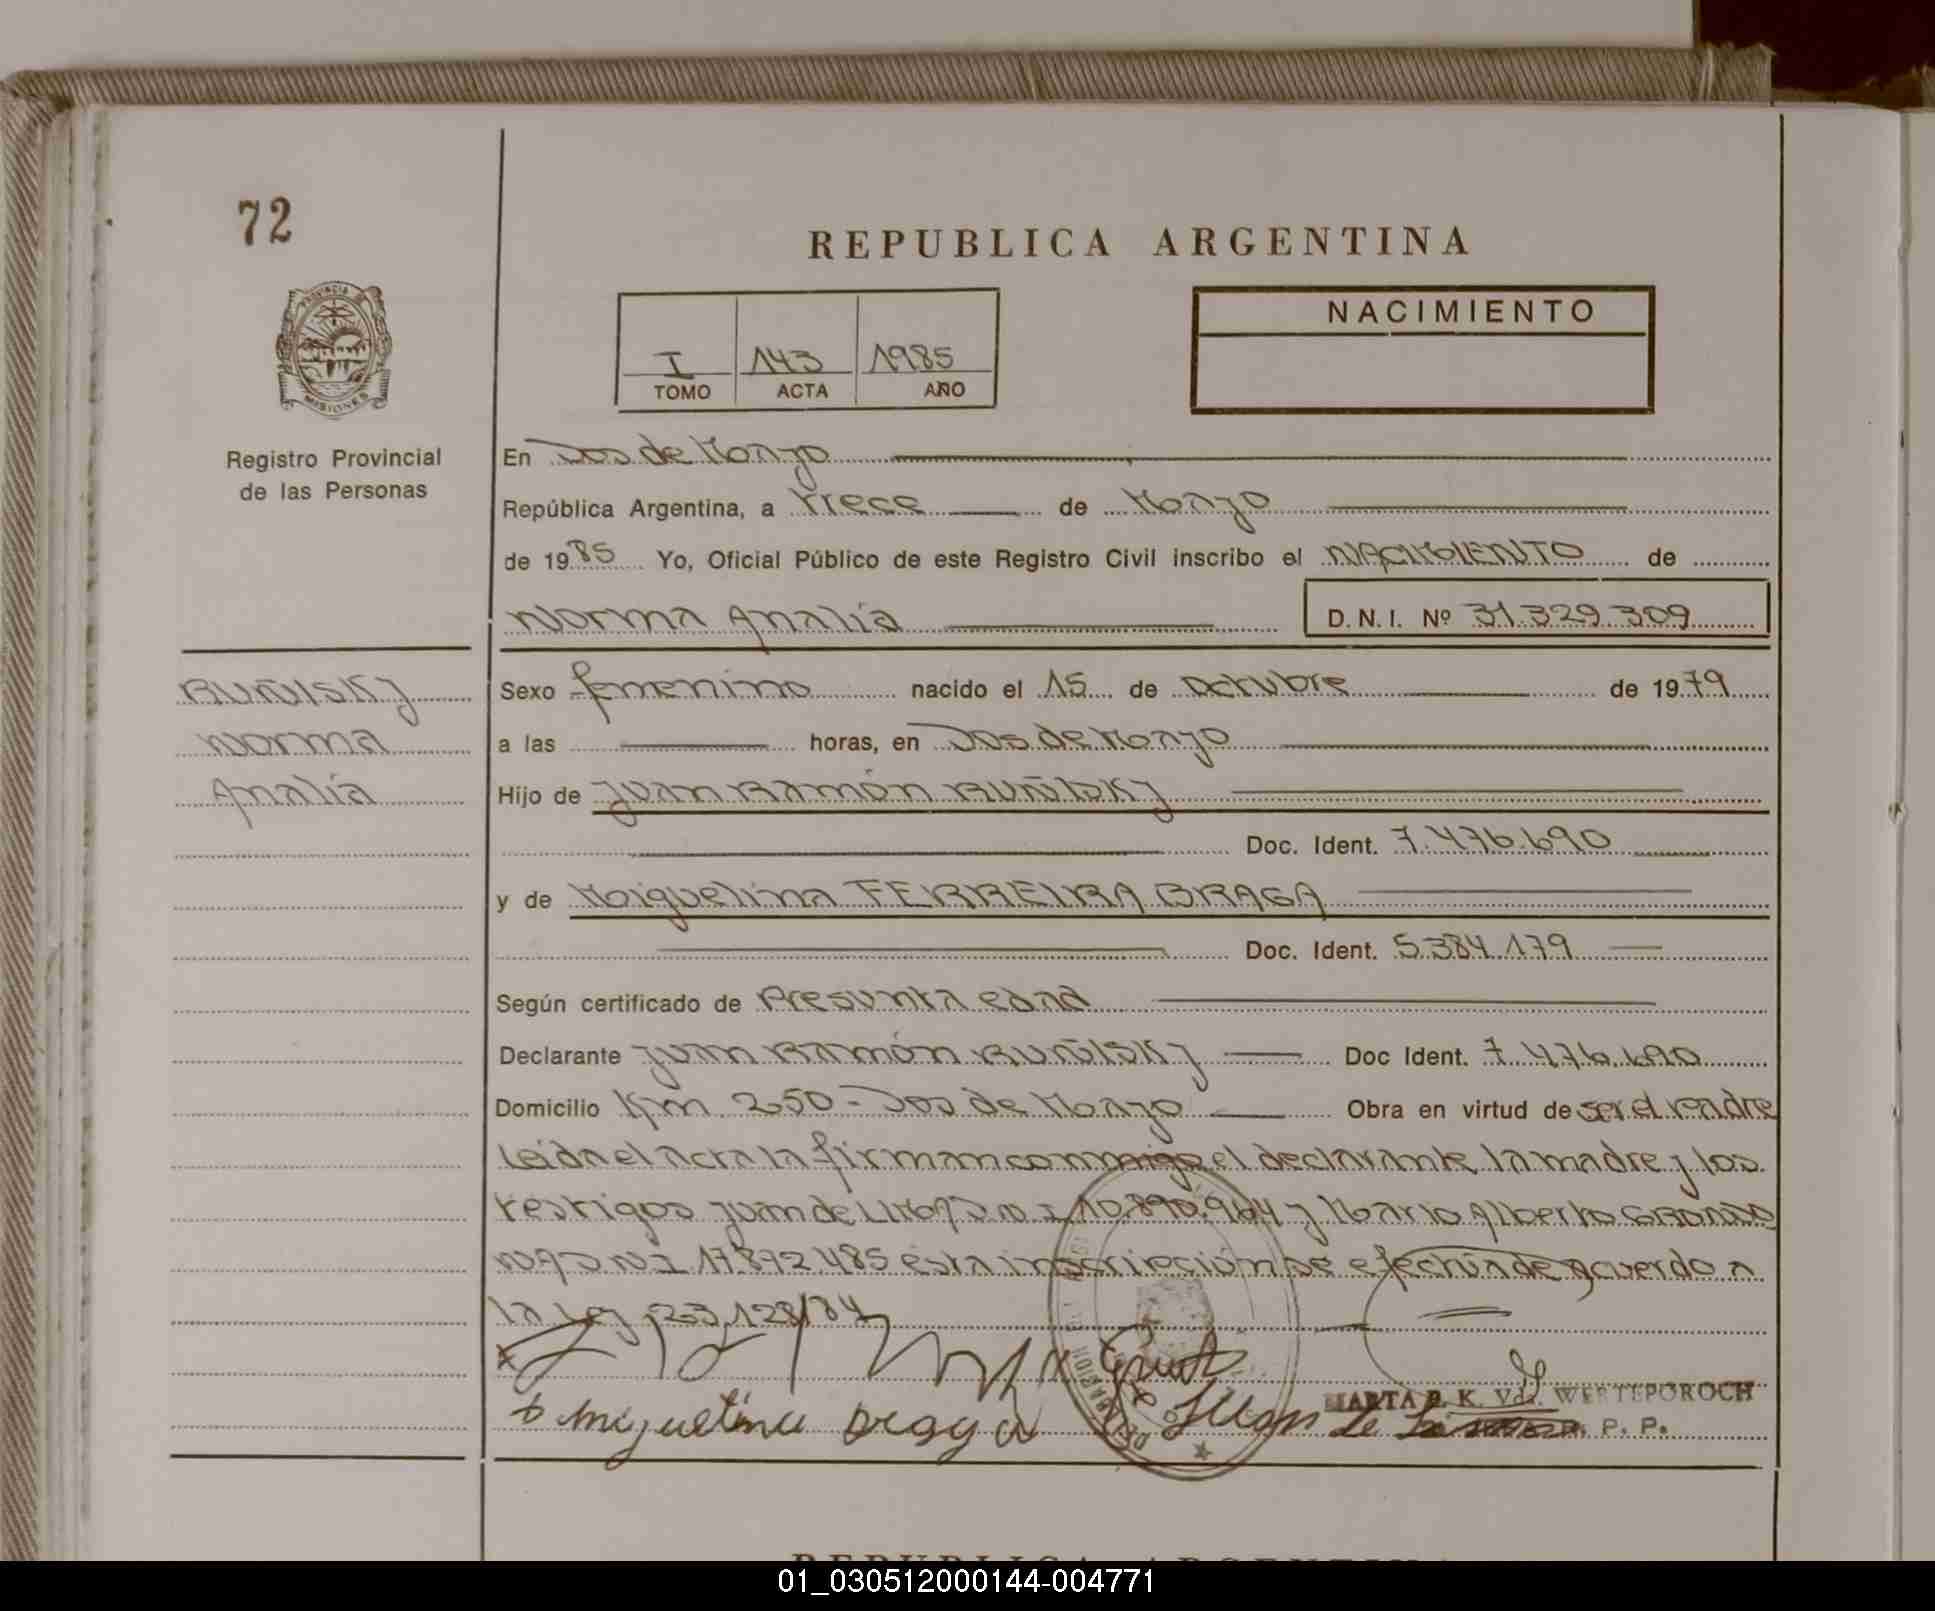 72
REPUBLICA ARGENTINA
PROVINCIA DE
MISIONES
NACIMIENTO
I 143 1985
TOMO ACTA AÑO
Registro Provincial
de las Personas
En Dos de Mayo
República Argentina, a trece de Mayo
de 1985 Yo, Oficial Público de este Registro Civil inscribo el NACIMIENTO de
Norma Analía D.N.I. Nº 31.329.309
RUÑISKJ
Norma
Analía
Sexo femenino nacido el 15 de octubre de 1979
a las horas, en Dos de Mayo
Hijo de Juan Ramón RUÑISKJ
Doc. Ident. 7.476.690
y de Miguelina FERREIRA BRAGA
Doc. Ident. 5.384.179
Según certificado de Presunta edad
Declarante Juan Ramón RUÑISKJ Doc Ident. 7.476.690
Domicilio Km 250 - Dos de Mayo Obra en virtud de ser el padre
Leida el acta la firman conmigo el declarante la madre y los
testigos Juan de LIMA D.N.I 10.890.964 y Mario Alberto
D N I 17.872.485 esta inscripción se efectúa de acuerdo a
la Ley 23.128/84
Miguelina Braga Juan de
MARTA R. K. Vda. WERTEPOROCH
R. P. P.
REPUBLICA ARGENTINA
01_030512000144-004771